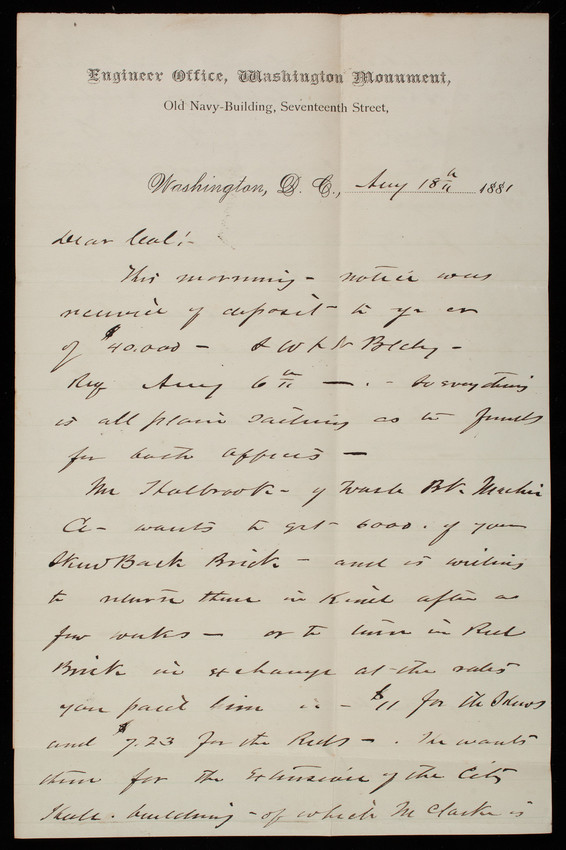 Engineer Office, Washington Monument,
Old Navy-Building, Seventeenth Street,
Washington, D. C., Aug 18th 1881
Dear Col!-
This morning - notice was
received of deposit to yr cr
of $40.000 - S W & N Bldg -
Req Aug 6th — . - So everything
is all plain sailing as to funds
for both offices —
Mr Holbrook - of Wash Bk Machine
Co - wants to get 6000. of your
Skew Back Brick - and is willing
to return them in Kind after a
few weeks — or to turn in Red
Brick in exchange at the rates
you paid him - $11 for the Skews
and $7.23 for the Reds - . He wants
them for the Extension of the City
Hall. building - of which Mr Clark is